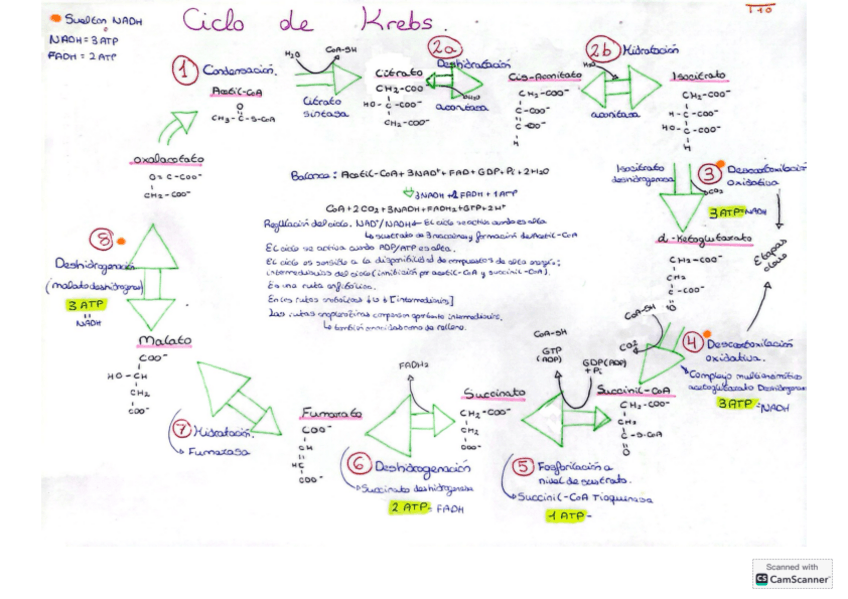 Ciclo de Krebs.
T10
Sueltan NADH
NADH = 3 ATP
FADH = 2 ATP
1 Condensación.
Acetil-CoA
O
CH3-C-S-CoA
H2O
CoA-SH
Citrato
sintasa
Citrato
CH2-COO
HO-C-COO⁻
CH2-COO⁻
2a
Deshidratación
aconitasa
Cis-Aconitato
CH2-COO⁻
C-COO⁻
C-COO⁻
H
2b Hidratación
H2O
aconitasa
Isocitrato
CH2-COO⁻
H-C-COO⁻
HO-C-COO⁻
H
Isocitrato
deshidrogenasa
3 Descarboxilación
oxidativa
CO2
3 ATP=NADH
Etapas
clave
α-Ketoglutarato
CH2-COO⁻
CH2
C-COO⁻
O
CoA-SH
CO2
4 Descarboxilación
oxidativa.
Complejo multienzimático
3 ATP=NADH
Succinil-CoA
CH2-COO⁻
CH2
C-S-CoA
O
5 Fosforilación a
nivel de sustrato.
Succinil-CoA
1 ATP-
CoA-SH
GTP
(ADP)
GDP(ADP)
+Pi
Succinato
CH2-COO⁻
CH2
COO⁻
FADH2
6 Deshidrogenación
Succinato deshidrogenasa
2 ATP= FADH
Fumarato
COO⁻
CH
HC
COO⁻
7 Hidratación.
Fumarasa
Malato
COO⁻
HO-CH
CH2
COO⁻
8
Deshidrogenación
(malato deshidrogenasa)
3 ATP
NADH
oxalacetato
O=C-COO⁻
CH2-COO⁻
Balance: Acetil-CoA+3NAD⁺+FAD+GDP+Pi+2H2O
CoA+2CO2+3NADH+FADH2+GTP+2H⁺
Regulación del ciclo. NAD⁺/NADH El ciclo se activa cuando es alta
El ciclo se activa cuando ADP/ATP es alta.
El ciclo es sensible a la disponibilidad de compuestos de alta energía;
intermediarios del ciclo (inhibición por acetil-CoA y succinil-CoA).
Es una ruta anfibólica.
En las rutas anabólicas [intermediarios]
Las rutas anapleróticas
también
Scanned with
CS CamScanner